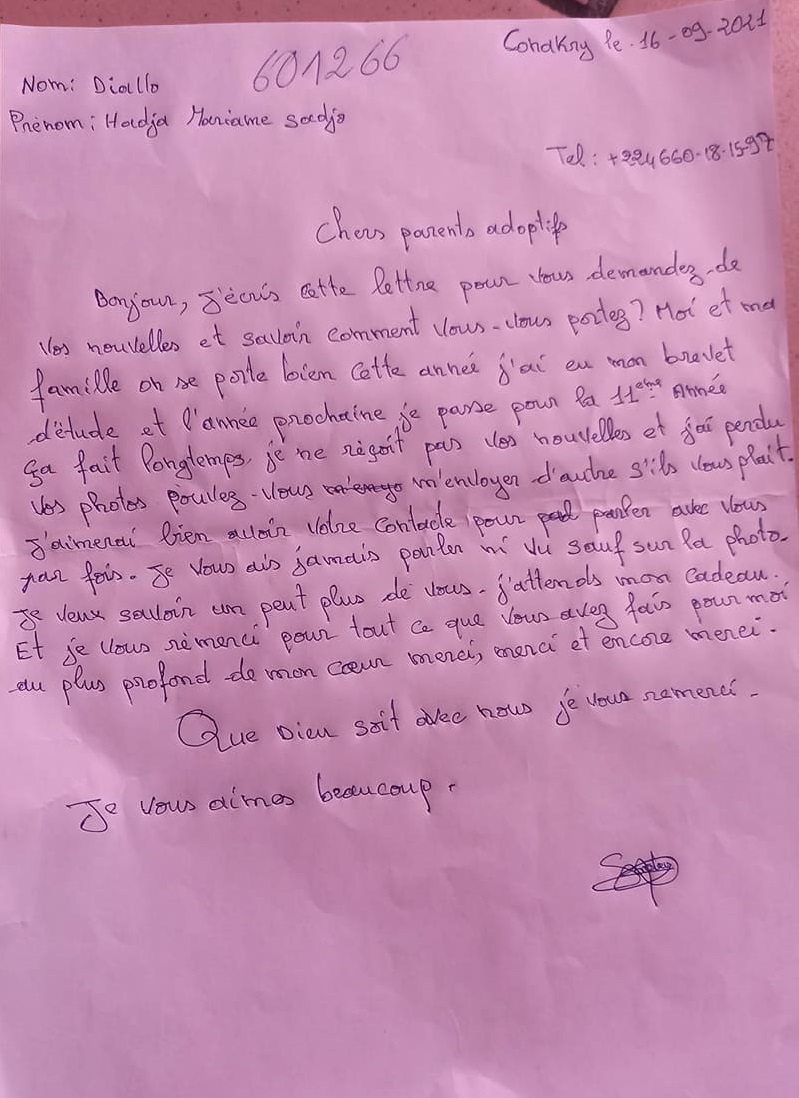 Conakry le 16-09-2021
601266
Nom: Diallo
Prénom: Hadja Mariame sadjo
Tel: +224660-18-15-97
Chers parents adoptifs
Bonjour, j'écris cette lettre pour vous demandez de
vos nouvelles et savoir comment vous-vous portez? Moi et ma
famille on se porte bien cette année j'ai eu mon brevet
d'étude et l'année prochaine je passe pour la 11ème Année
ça fait longtemps, je ne réçoit pas vos nouvelles et j'ai perdu
vos photos pouvez-vous m'envoyer d'autre s'ils vous plait.
J'aimerai bien avoir votre contacte pour parler avec vous
par fois. Je vous ais jamais parler ni vu sauf sur la photo.
Je veux savoir un peut plus de vous. j'attends mon cadeau.
Et je vous rèmerci pour tout ce que vous avez fais pour moi
du plus profond de mon cœur merci, merci et encore merci.
Que Dieu soit avec nous je vous remerci.
Je vous aimes beaucoup.